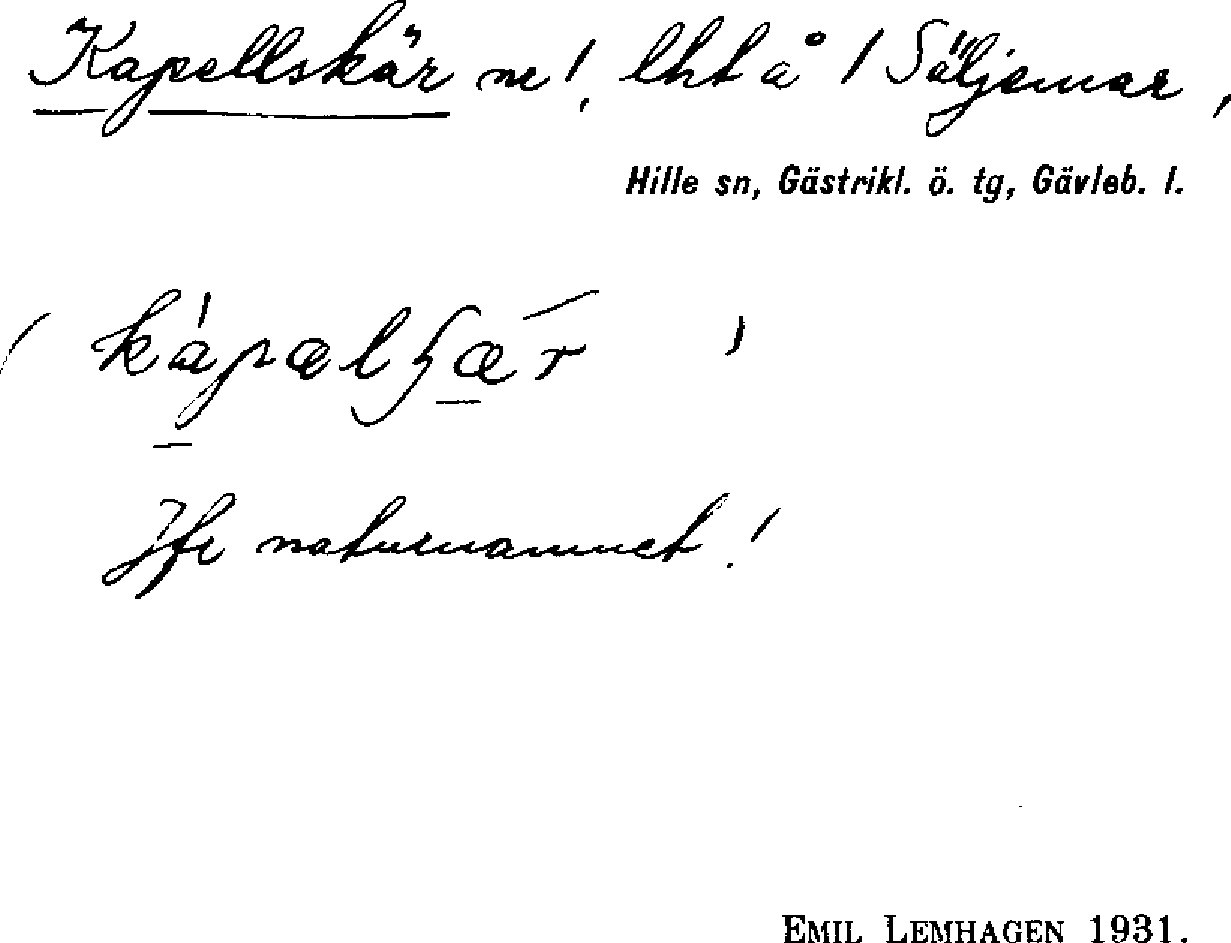 Kapellskär nr 1, lht å 1 Säljemar,
Hille sn, Gästrikl. ö. tg, Gävleb. l.
Jfr naturnamnet!
EMIL LEMHAGEN 1931.